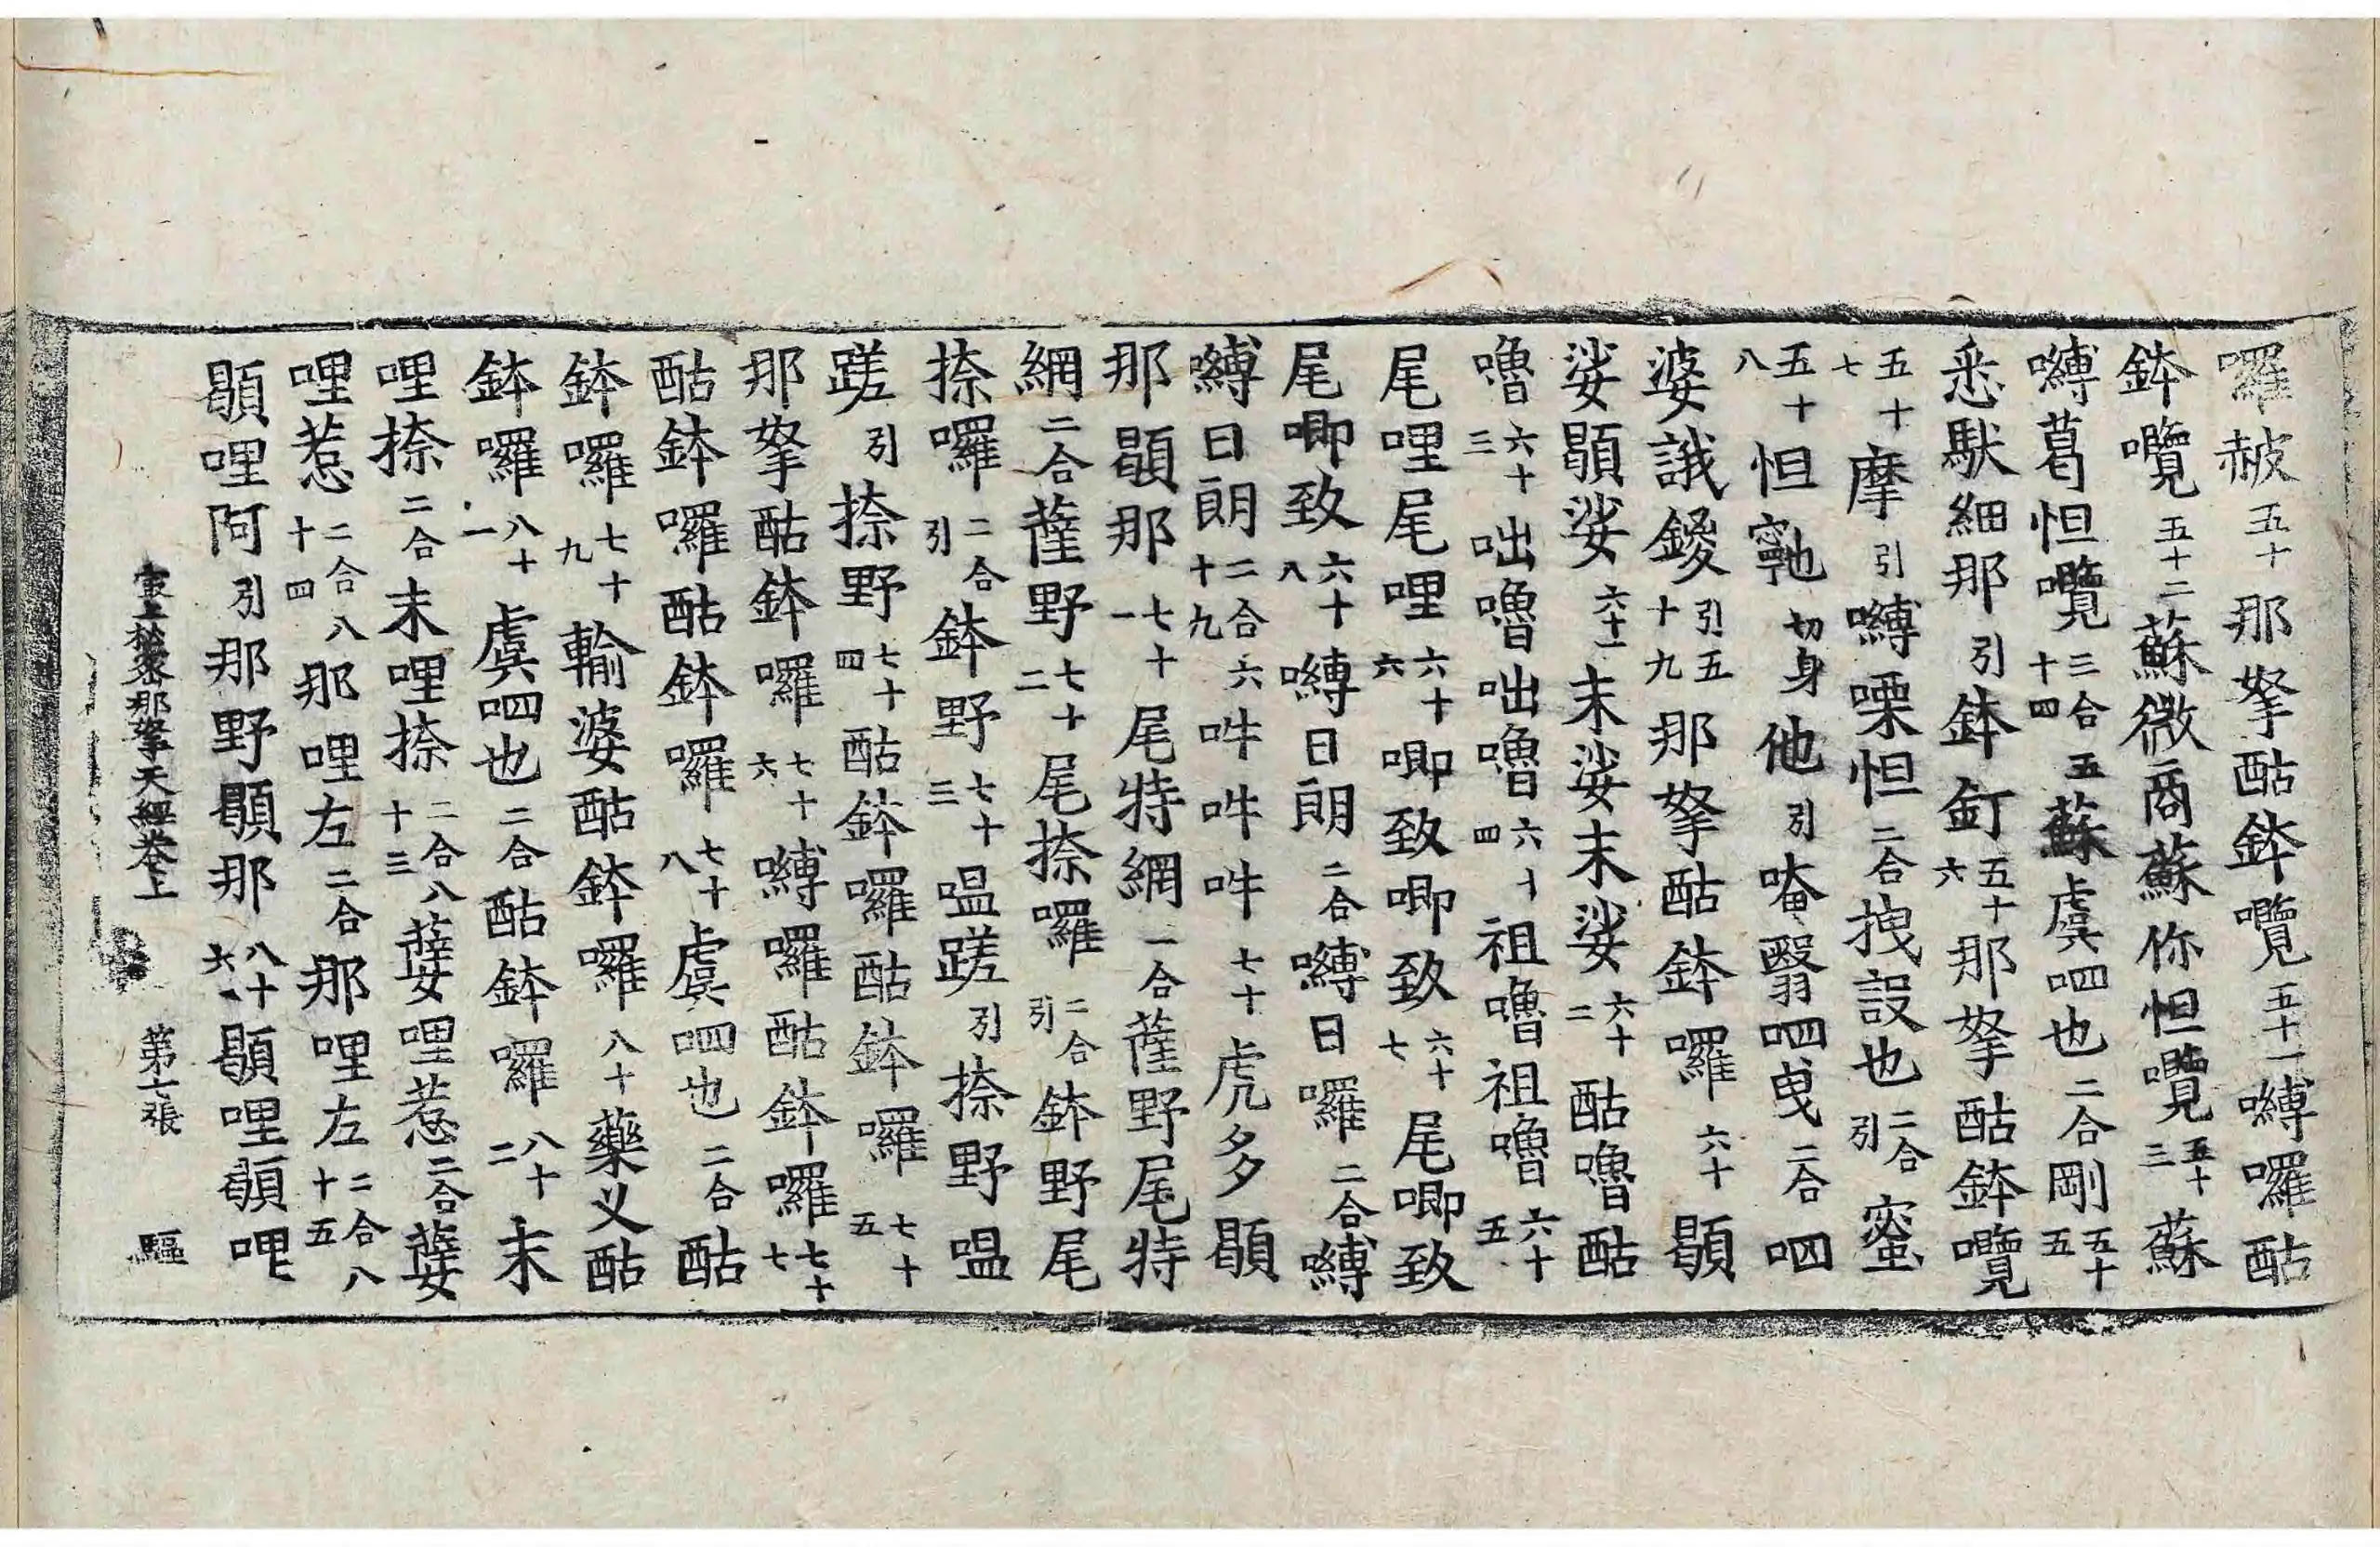 囉赧五十那拏酤鉢囕五十一嚩囉酤
鉢囕五十二蘇微商蘇你怛囕五十三蘇
嚩葛怛囕三合五十四蘇虞呬也二合剛五十五
悉馱細那引鉢釘五十六那拏酤鉢囕
五十七摩引嚩㗚怛二合拽設也二合引蜜
五十八怛𩕳切身他引唵翳呬曳二合呬
婆誐鑁引五十九那拏酤鉢囉六十顕
娑顕娑六十一末娑末娑六十二酤嚕酤
嚕六十三咄嚕咄嚕六十四祖嚕祖嚕六十五
尾哩尾哩六十六唧致唧致六十七尾唧致
尾唧致六十八嚩日朗二合嚩日囉二合嚩
嚩日朗二合六十九吽吽吽七十虎多顕
那顕那七十一尾特網二合薩野尾特
網二合薩野七十二尾捺囉二合引鉢野尾
捺囉二合引鉢野七十三嗢蹉引捺野嗢
蹉引捺野七十四酤鉢囉酤鉢囉七十五
那拏酤鉢囉七十六嚩囉酤鉢囉七十七
酤鉢囉酤鉢囉七十八虞呬也二合酤
鉢囉七十九輸婆酤鉢囉八十藥义酤
鉢囉八十一虞呬也二合酤鉢囉八十二末
哩捺二合末哩捺二合八十三㜸哩惹二合㜸
哩惹二合八十四那哩左二合那哩左二合八十五
顕哩阿引那野顕那八十六顕哩顕哩
最上祕密那拏天經卷上 第七張 驅